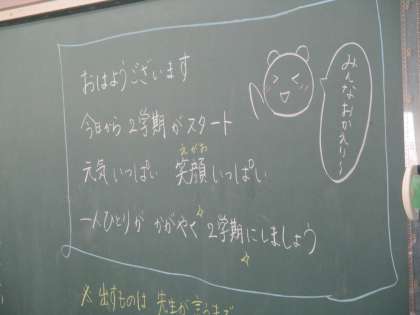 おはようございます
今日から2学期がスタート
元気いっぱい 笑顔いっぱい
えがお
一人ひとりが かがやく☆2学期にしましょう☆
みんなおかえり〜
※出すものは 先生が言うまで